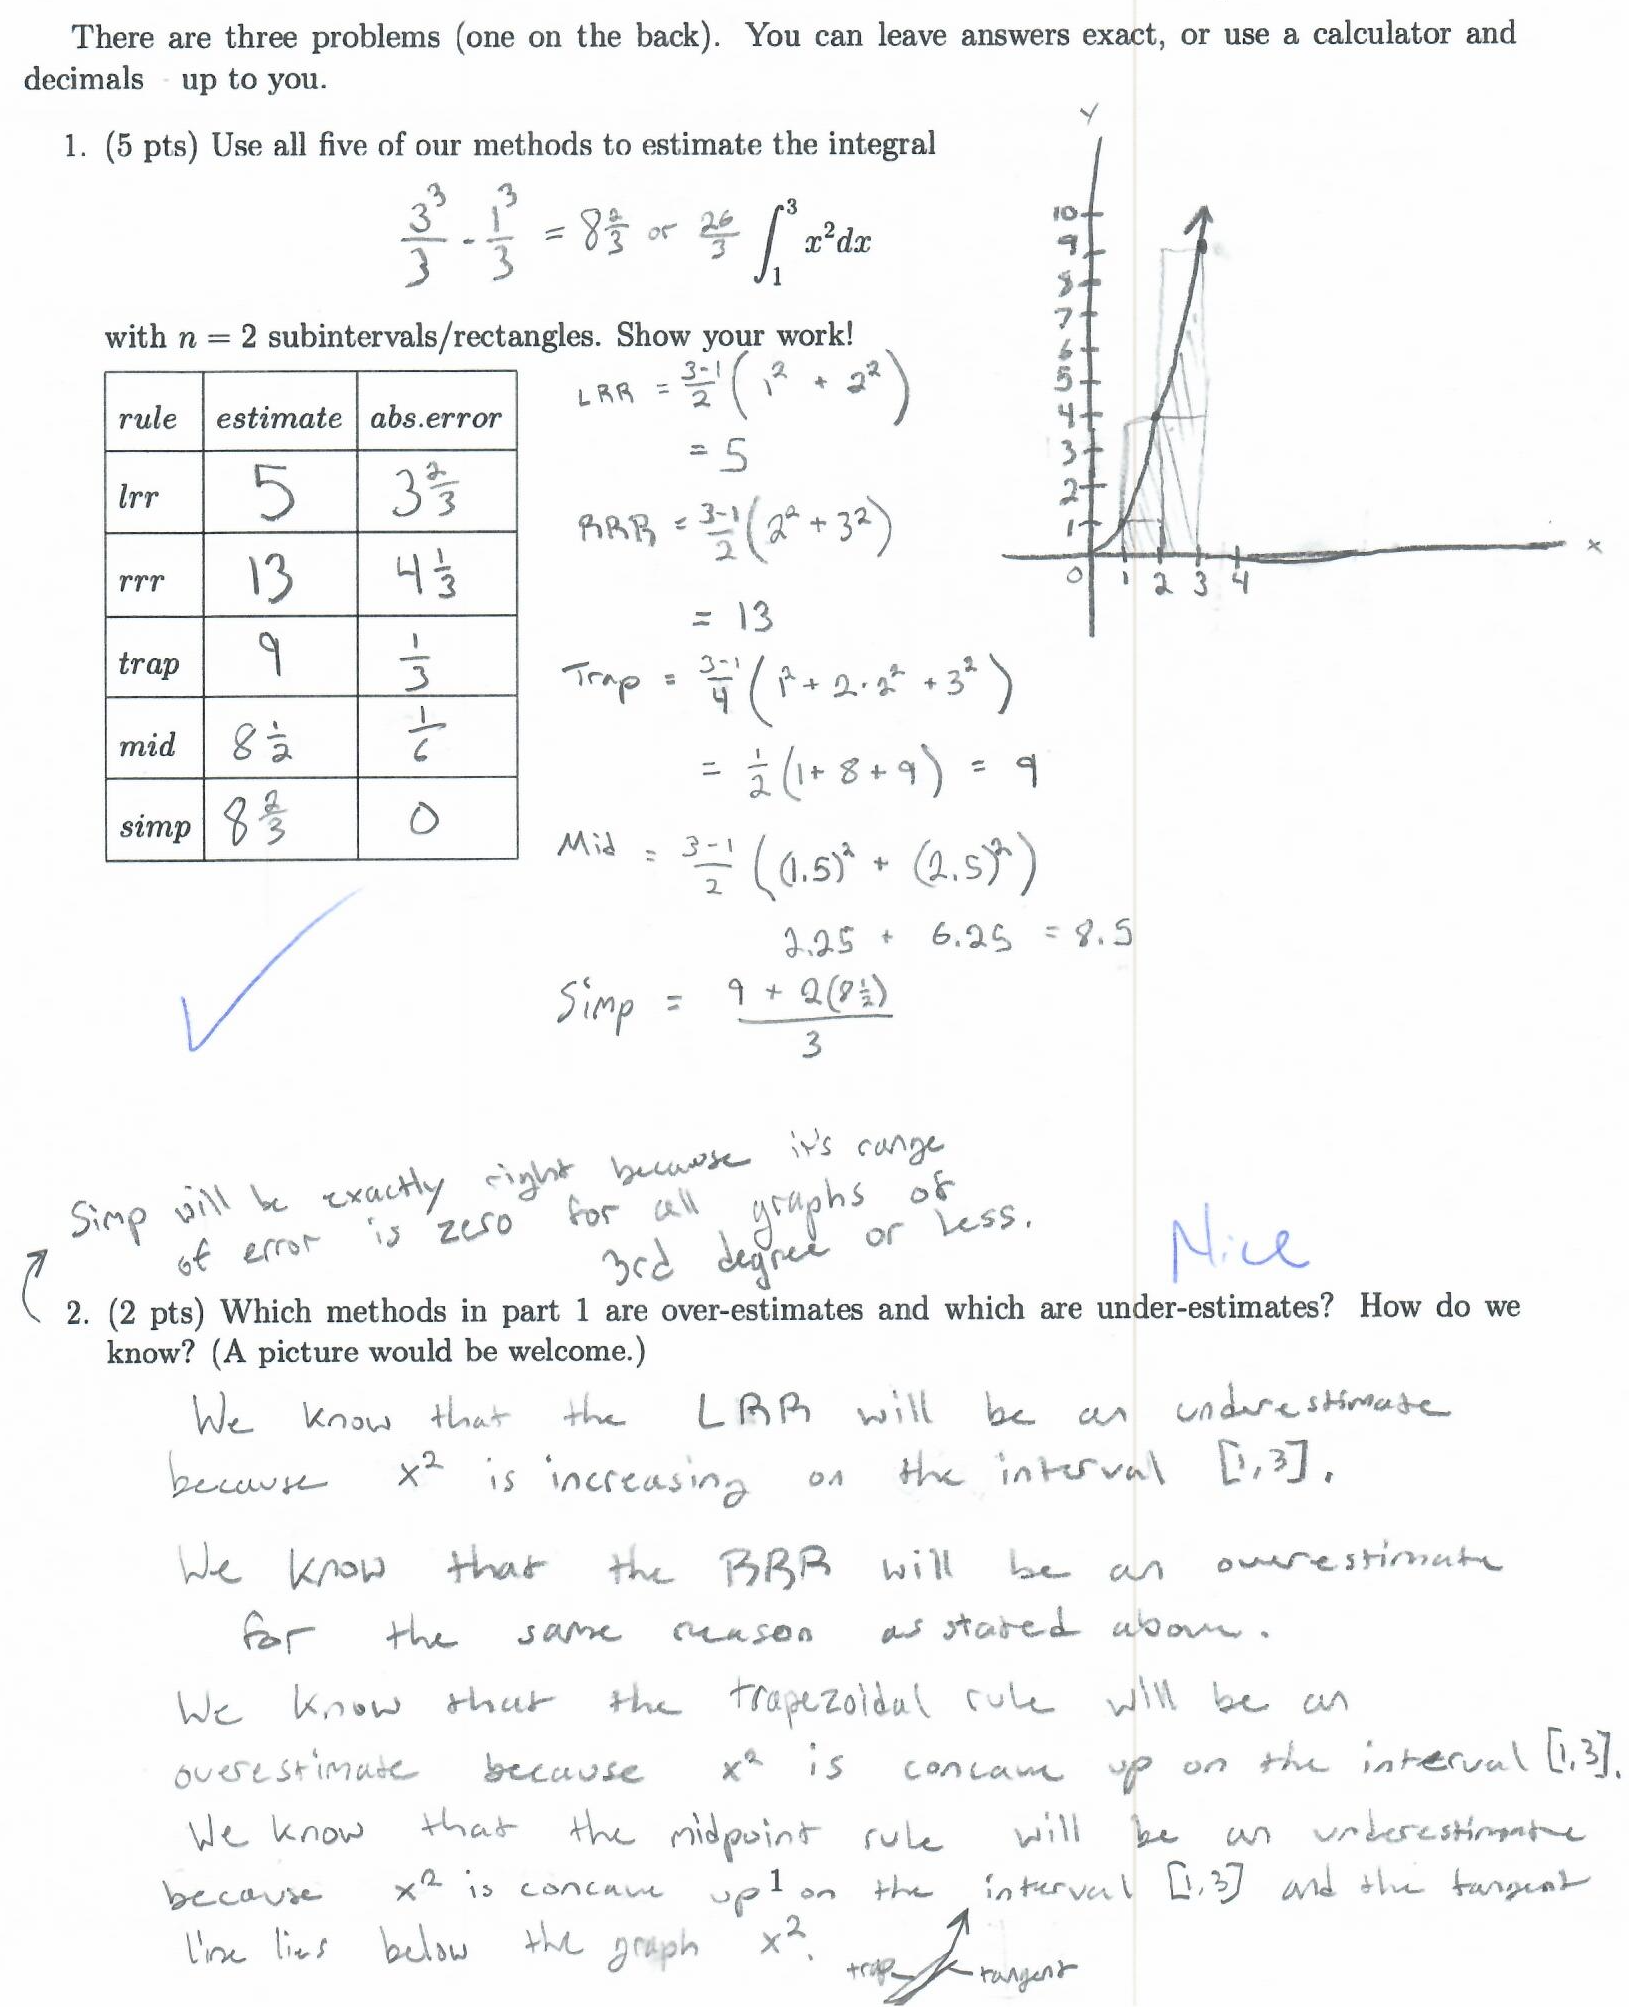 There are three problems (one on the back). You can leave answers exact, or use a calculator and
decimals - up to you.
1. (5 pts) Use all five of our methods to estimate the integral
3³/3 - 1³/3 = 8 2/3 or 26/3 ∫₁³ x²dx
with n = 2 subintervals/rectangles. Show your work!
rule estimate abs.error
lrr 5 3 2/3
rrr 13 4 1/3
trap 9 1/3
mid 8 1/2 1/6
simp 8 2/3 0
LRR = 3-1/2 (1² + 2²)
= 5
RRR = 3-1/2 (2² + 3²)
= 13
Trap = 3-1/4 (1² + 2·2² + 3²)
= 1/2 (1 + 8 + 9) = 9
Mid = 3-1/2 ((1.5)² + (2.5)²)
2.25 + 6.25 = 8.5
Simp = 9 + 2(8 1/2) / 3
Y
10
9
8
7
6
5
4
3
2
1
0 1 2 3 4
x
Simp will be exactly right because it's range
of error is zero for all graphs of
3rd degree or less.
Nice
2. (2 pts) Which methods in part 1 are over-estimates and which are under-estimates? How do we
know? (A picture would be welcome.)
We know that the LRR will be an underestimate
because x² is increasing on the interval [1,3].
We know that the RRR will be an overestimate
for the same reason as stated above.
We know that the trapezoidal rule will be an
overestimate because x² is concave up on the interval [1,3].
We know that the midpoint rule will be an underestimate
because x² is concave up 1 on the interval [1,3] and the tangent
line lies below the graph x².
trap tangent